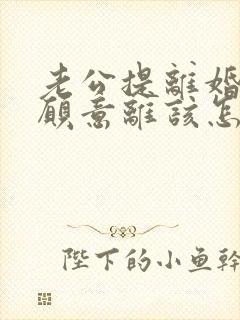 老公提離婚
願意離該怎
陛下的小鱼幹